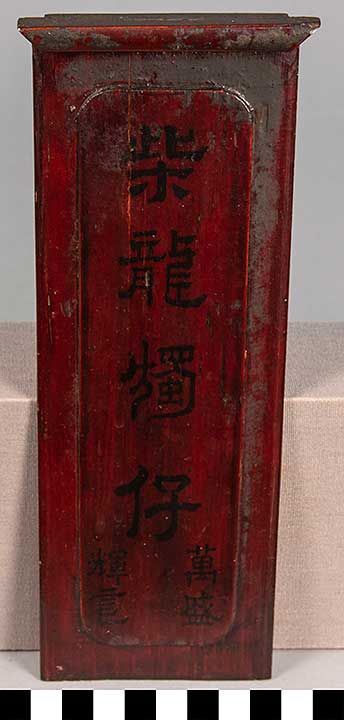 柴龍燭仔
萬盛
輝記